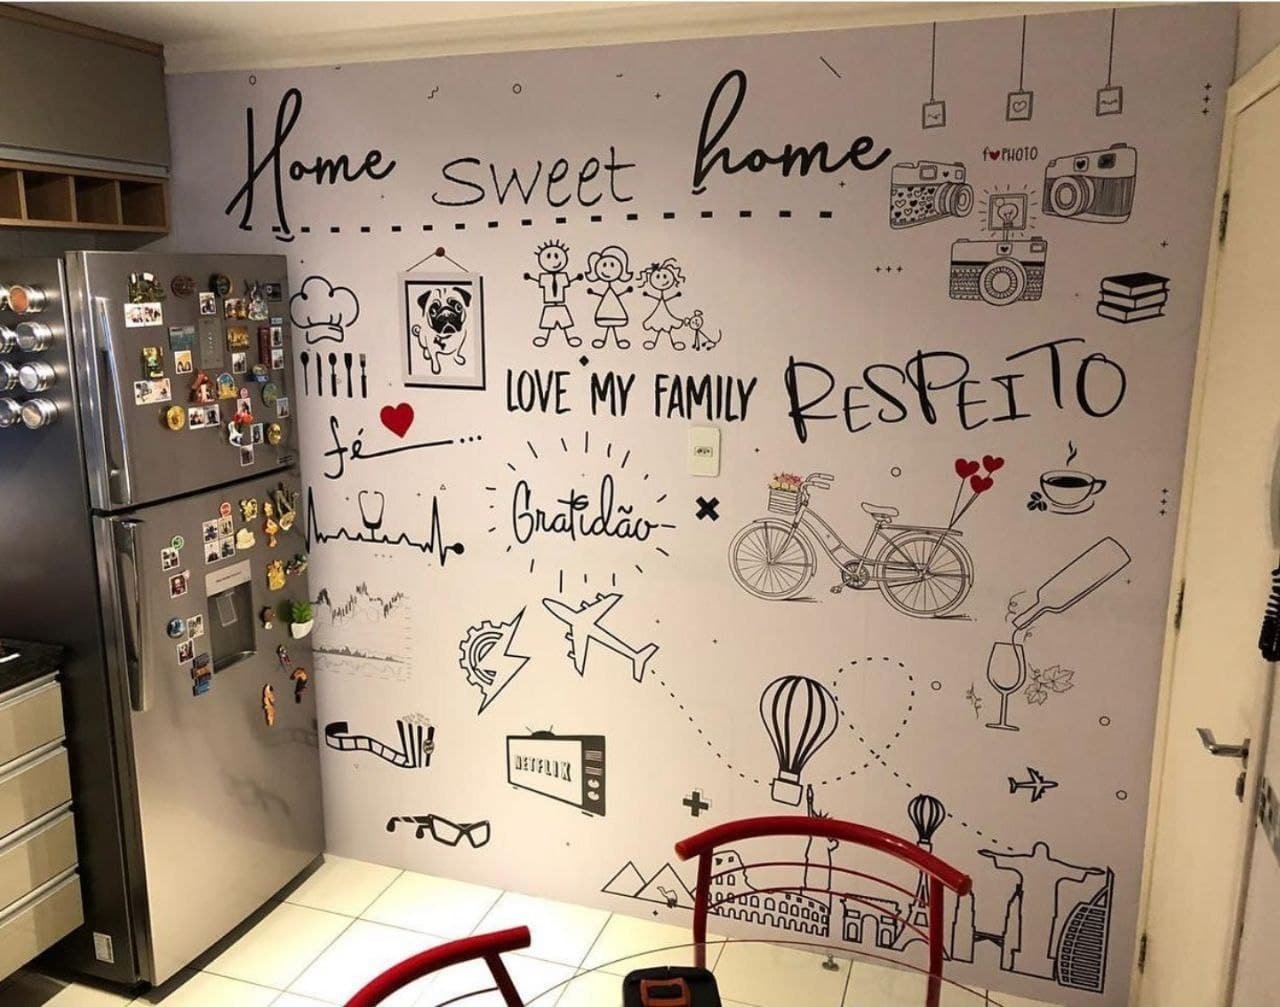 Home sweet home
f❤PHOTO
LOVE MY FAMILY
RESPEITO
fé
Gratidão
NETFLIX